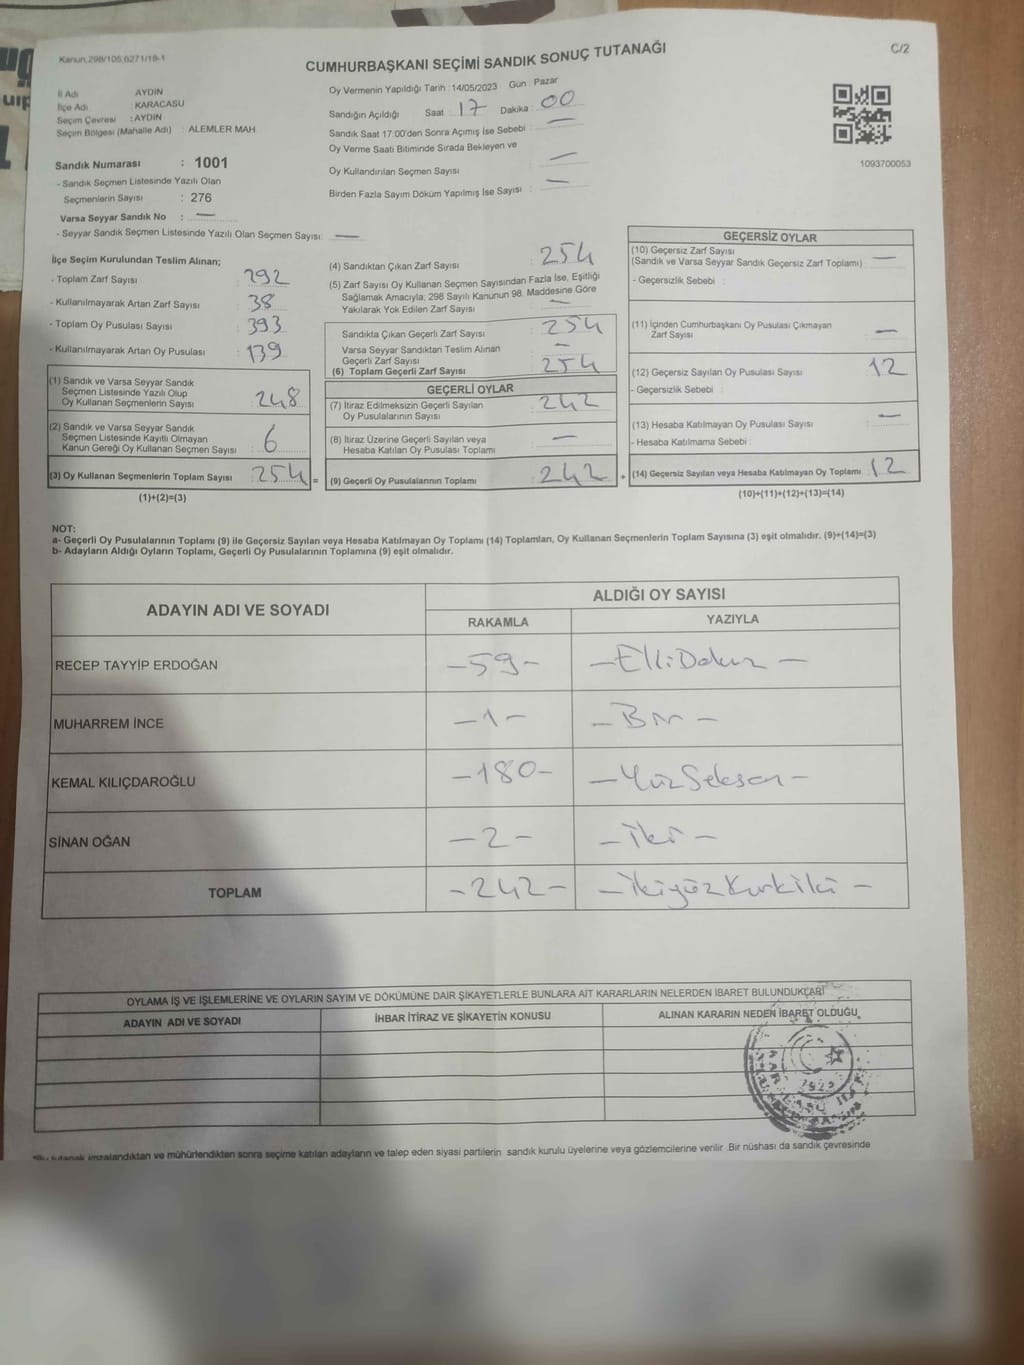 Kanun,298/105,6271/18-1
C/2
CUMHURBAŞKANI SEÇİMİ SANDIK SONUÇ TUTANAĞI
İl Adı AYDIN
İlçe Adı : KARACASU
Seçim Çevresi : AYDIN
Seçim Bölgesi (Mahalle Adı) : ALEMLER MAH
Sandık Numarası : 1001
- Sandık Seçmen Listesinde Yazılı Olan
Seçmenlerin Sayısı : 276
Varsa Seyyar Sandık No : —
- Seyyar Sandık Seçmen Listesinde Yazılı Olan Seçmen Sayısı: —
Oy Vermenin Yapıldığı Tarih : 14/05/2023 Gün : Pazar
Sandığın Açıldığı Saat : 17 Dakika : 00
Sandık Saat 17:00'den Sonra Açımış İse Sebebi : —
Oy Verme Saati Bitiminde Sırada Bekleyen ve
Oy Kullandırılan Seçmen Sayısı : —
Birden Fazla Sayım Döküm Yapılmış İse Sayısı : —
1093700053
İlçe Seçim Kurulundan Teslim Alınan;
- Toplam Zarf Sayısı : 292
- Kullanılmayarak Artan Zarf Sayısı : 38
- Toplam Oy Pusulası Sayısı : 393
- Kullanılmayarak Artan Oy Pusulası : 139
(1) Sandık ve Varsa Seyyar Sandık
Seçmen Listesinde Yazılı Olup
Oy Kullanan Seçmenlerin Sayısı : 248
(2) Sandık ve Varsa Seyyar Sandık
Seçmen Listesinde Kayıtlı Olmayan
Kanun Gereği Oy Kullanan Seçmen Sayısı : 6
(3) Oy Kullanan Seçmenlerin Toplam Sayısı : 254 =
(1)+(2)=(3)
(4) Sandıktan Çıkan Zarf Sayısı : 254
(5) Zarf Sayısı Oy Kullanan Seçmen Sayısından Fazla İse, Eşitliği
Sağlamak Amacıyla; 298 Sayılı Kanunun 98. Maddesine Göre
Yakılarak Yok Edilen Zarf Sayısı : —
Sandıkta Çıkan Geçerli Zarf Sayısı : 254
Varsa Seyyar Sandıktan Teslim Alınan
Geçerli Zarf Sayısı : —
(6) Toplam Geçerli Zarf Sayısı : 254
GEÇERLİ OYLAR
(7) İtiraz Edilmeksizin Geçerli Sayılan
Oy Pusulalarının Sayısı : 242
(8) İtiraz Üzerine Geçerli Sayılan veya
Hesaba Katılan Oy Pusulası Toplamı : —
(9) Geçerli Oy Pusulalarının Toplamı : 242 +
GEÇERSİZ OYLAR
(10) Geçersiz Zarf Sayısı
(Sandık ve Varsa Seyyar Sandık Geçersiz Zarf Toplamı) : —
- Geçersizlik Sebebi :
(11) İçinden Cumhurbaşkanı Oy Pusulası Çıkmayan
Zarf Sayısı : —
(12) Geçersiz Sayılan Oy Pusulası Sayısı : 12
- Geçersizlik Sebebi :
(13) Hesaba Katılmayan Oy Pusulası Sayısı : —
- Hesaba Katılmama Sebebi :
(14) Geçersiz Sayılan veya Hesaba Katılmayan Oy Toplamı : 12
(10)+(11)+(12)+(13)=(14)
NOT:
a- Geçerli Oy Pusulalarının Toplamı (9) ile Geçersiz Sayılan veya Hesaba Katılmayan Oy Toplamı (14) Toplamları, Oy Kullanan Seçmenlerin Toplam Sayısına (3) eşit olmalıdır. (9)+(14)=(3)
b- Adayların Aldığı Oyların Toplamı, Geçerli Oy Pusulalarının Toplamına (9) eşit olmalıdır.
ADAYIN ADI VE SOYADI ALDIĞI OY SAYISI
RAKAMLA YAZIYLA
RECEP TAYYİP ERDOĞAN -59- - Elli Dokuz -
MUHARREM İNCE -1- - Bir -
KEMAL KILIÇDAROĞLU -180- - Yüz Seksen -
SİNAN OĞAN -2- - İki -
TOPLAM -242- - İkiyüz Kırkiki -
OYLAMA İŞ VE İŞLEMLERİNE VE OYLARIN SAYIM VE DÖKÜMÜNE DAİR ŞİKAYETLERLE BUNLARA AİT KARARLARIN NELERDEN İBARET BULUNDUKLARI
ADAYIN ADI VE SOYADI İHBAR İTİRAZ VE ŞİKAYETİN KONUSU ALINAN KARARIN NEDEN İBARET OLDUĞU
tutanak imzalandıktan ve mühürlendikten sonra seçime katılan adayların ve talep eden siyasi partilerin sandık kurulu üyelerine veya gözlemcilerine verilir. Bir nüshası da sandık çevresinde